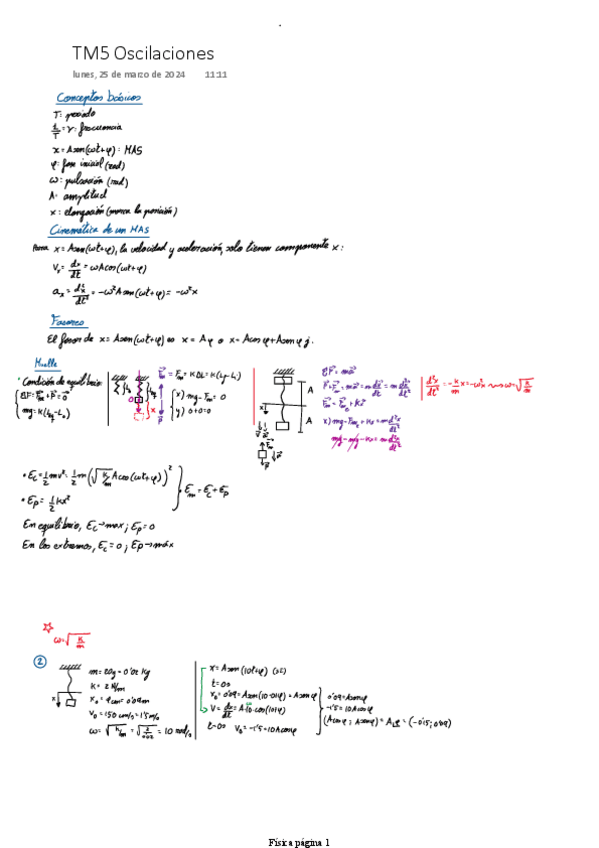 TM5 Oscilaciones
lunes, 25 de marzo de 2024 11:11
Conceptos básicos
T: periodo
1/T = ν: frecuencia
x = A sen(ωt+φ): MAS
φ: fase inicial (rad)
ω: pulsación (rad)
A: amplitud
x: elongación (marca la posición)
Cinemática de un MAS
Para x = A sen(ωt+φ), la velocidad y aceleración, solo tienen componente x:
Vₓ = dx/dt = ωA cos(ωt+φ)
aₓ = d²x/dt² = -ω²A sen(ωt+φ) = -ω²x
Fasores
El fasor de x = A sen(ωt+φ) es x = Aφ o x = A cos φ + A sen φ j.
Muelle
· Condición de equilibrio:
mg = k(Leq - L0)
x) mg - Fm = 0
y) 0 + 0 = 0
A
A
x
d²x/dt² = -k/m x = -ω²x ⇒ ω = √(k/m)
mg - mg - kx = m d²x/dt²
· Ec = 1/2 mv² = 1/2 m(√(k/m) A cos(ωt+φ))²
· Ep = 1/2 kx²
Em = Ec + Ep
En equilibrio, Ec → max; Ep = 0
En los extremos, Ec = 0; Ep → máx
ω = √(k/m)
2
m = 20g = 0'02 Kg
k = 2 N/m
x0 = 9 cm = 0'09m
v0 = 150 cm/s = 1'5 m/s
ω = √(k/m) = √(2/0'02) = 10 rad/s
x = A sen(10t+φ) (SI)
t = 0s
x0 = 0'09 = A sen(10·0+φ) = A sen φ
V = dx/dt = A·10·cos(10t+φ)
t = 0s V0 = -1'5 = 10A cos φ
0'09 = A sen φ
-1'5 = 10A cos φ
(A cos φ; A sen φ) = Aφ = (-0'15; 0'09)
Física página 1